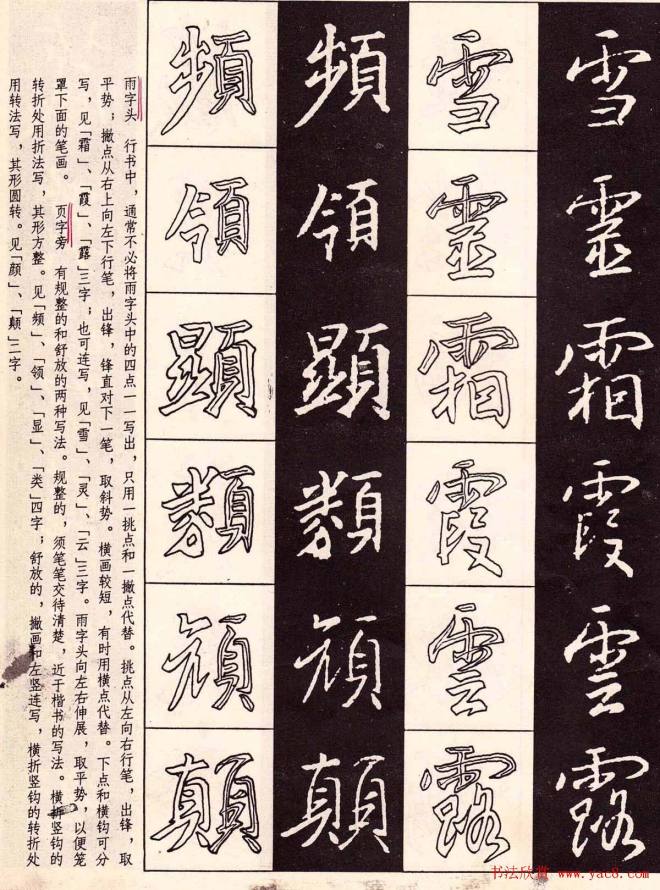 雪靈霜霞雲露
雪靈霜霞雲露
頻領顯類顏顛
頻領顯類顏顛
雨字头 行书中，通常不必将雨字头中的四点一一写出，只用一挑点和一撇点代替。挑点从左向右行笔，出锋，取
平势；撇点从右上向左下行笔，出锋，锋直对下一笔，取斜势。横画较短，有时用横点代替。下点和横钩可分
写，见「霜」、「霞」、「露」三字；也可连写，见「雪」、「灵」、「云」三字。雨字头向左右伸展，取平势，以便笼
罩下面的笔画。 页字旁 有规整的和舒放的两种写法。规整的，须笔笔交待清楚，近于楷书的写法。横折竖钩的
转折处用折法写，其形方整。见「频」、「领」、「显」、「类」四字；舒放的，撇画和左竖连写，横折竖钩的转折处
用转法写，其形圆转。见「颜」、「颠」二字。
书法欣赏 www.yac8.com